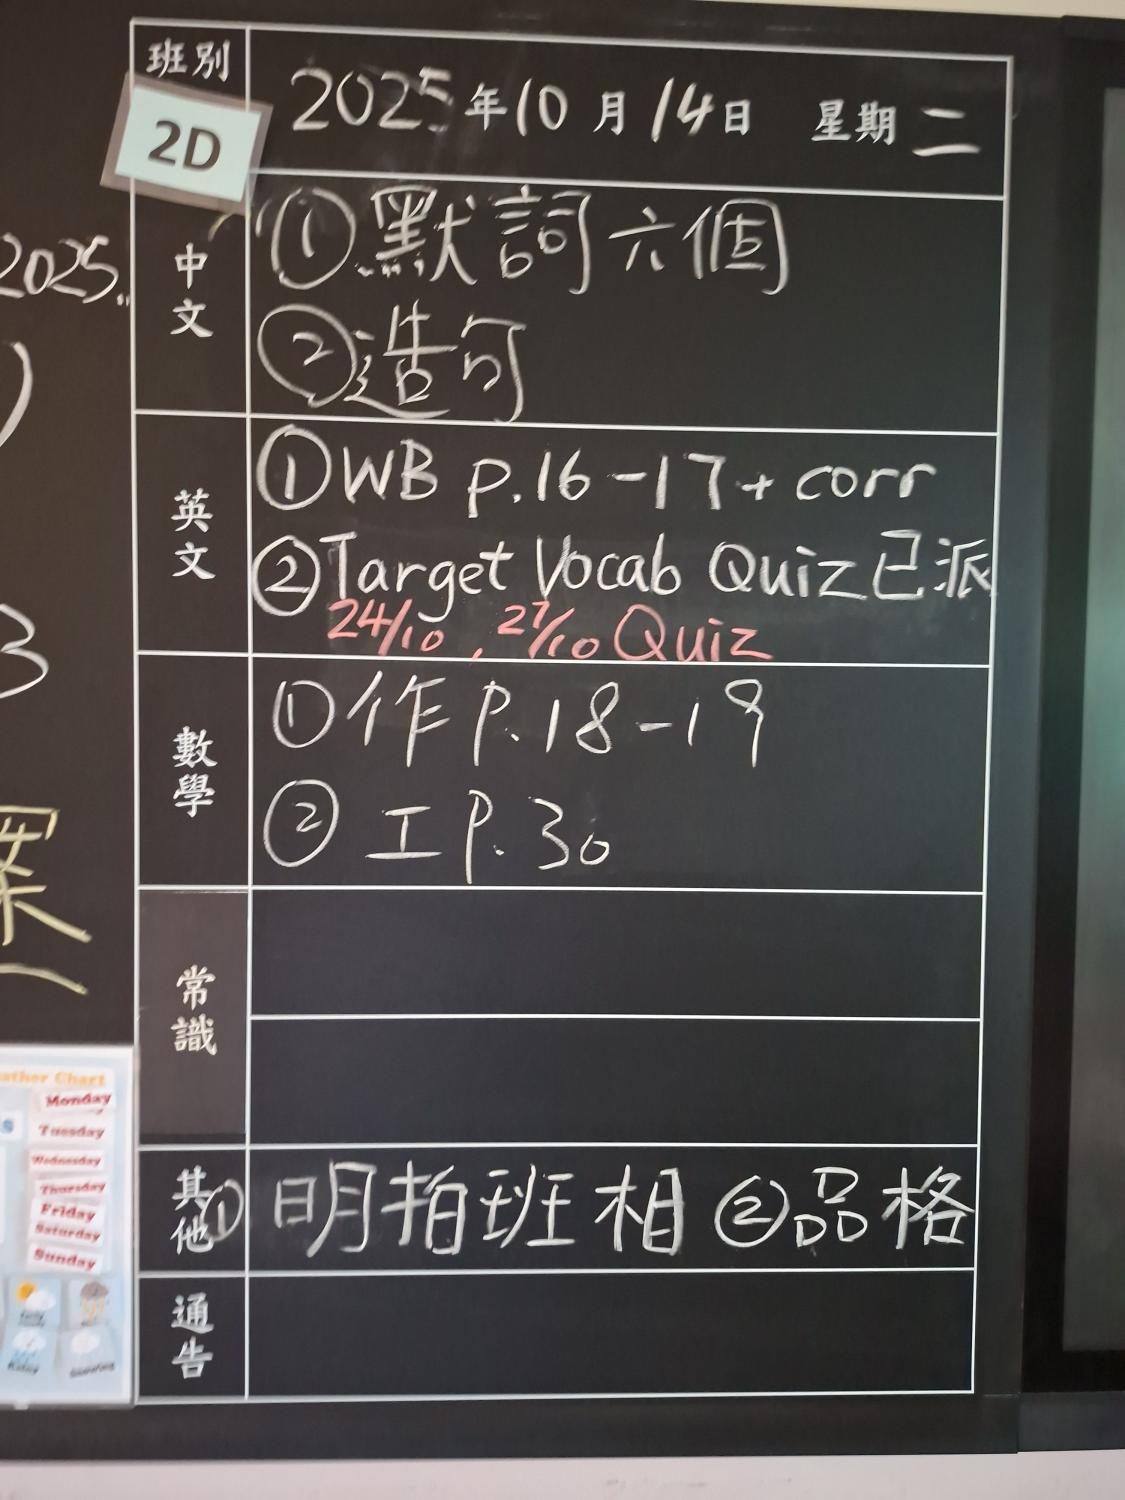 班別
2D
2025年10月14日 星期二
中文
①默詞六個
②造句
英文
①WB p.16-17+corr
②Target Vocab Quiz已派
24/10, 27/10 Quiz
數學
①作P.18-19
②工P.30
常識
其他
①明拍班相 ②品格
通告
2025..
3
案
ather Chart
Monday
Tuesday
Wednesday
Thursday
Friday
Saturday
Sunday
Rainy
Snowing